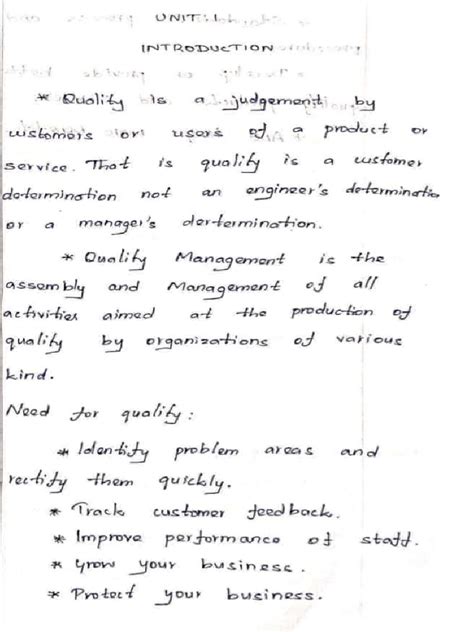 UNIT: 1
INTRODUCTION
* Quality is a judgement by
customers or users of a product or
service. That is quality is a customer
determination not an engineer's determinatio
or a manager's dertermination.
* Quality Management is the
assembly and Management of all
activities aimed at the production of
quality by organizations of various
kind.
Need for quality:
* Identify problem areas and
rectify them quickly.
* Track customer feedback.
* Improve performance of staff.
* Grow your business.
* Protect your business.